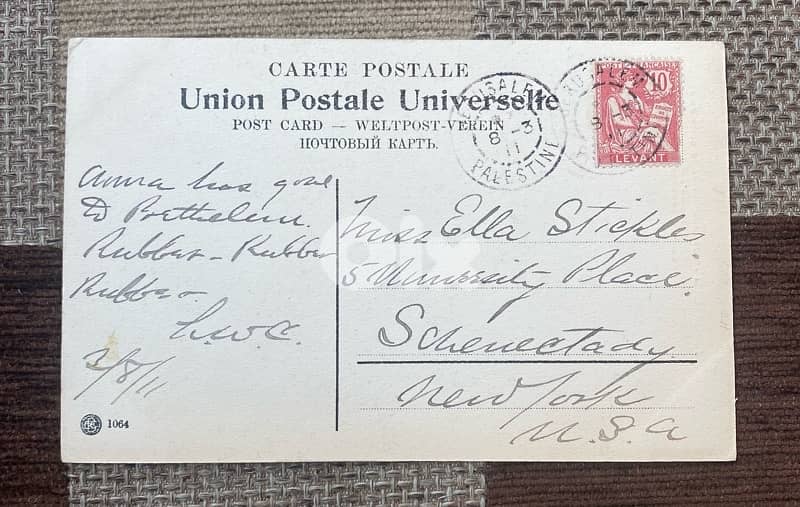 CARTE POSTALE
Union Postale Universelle
POST CARD — WELTPOST-VEREIN
ПОЧТОВЫЙ КАРТЪ.
JERUSALEM
8 - 3
11
PALESTINE
10
LEVANT
Anna has gone
to Bethlehem.
Rubber - Rubber
Rubber -
L.W.C.
3/8/11
Miss Ella Stickles
5 University Place.
Schenectady
New York
U.S.A
olx
1064